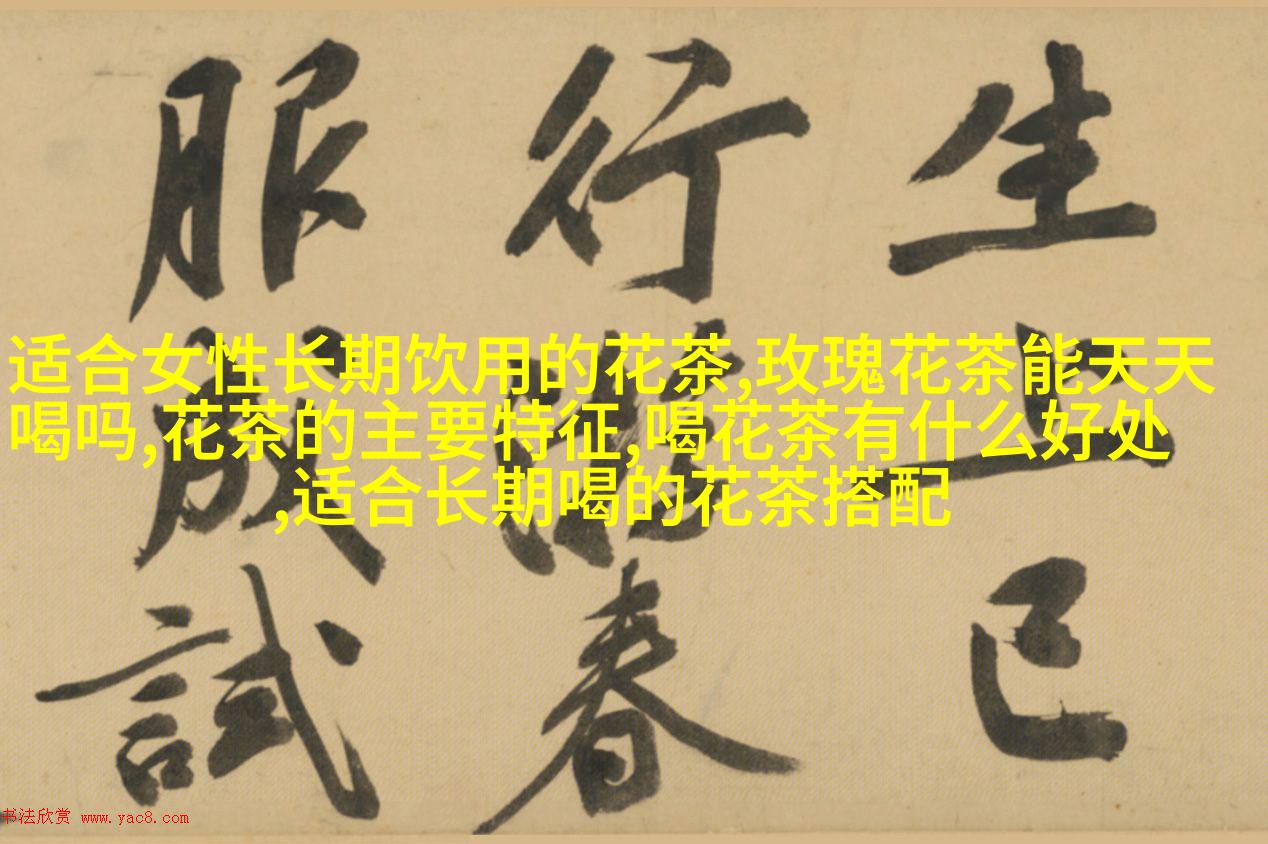 生上巳
行春
服成試
适合女性长期饮用的花茶,玫瑰花茶能天天
喝吗,花茶的主要特征,喝花茶有什么好处
,适合长期喝的花茶搭配
书法欣赏 www.yac8.com